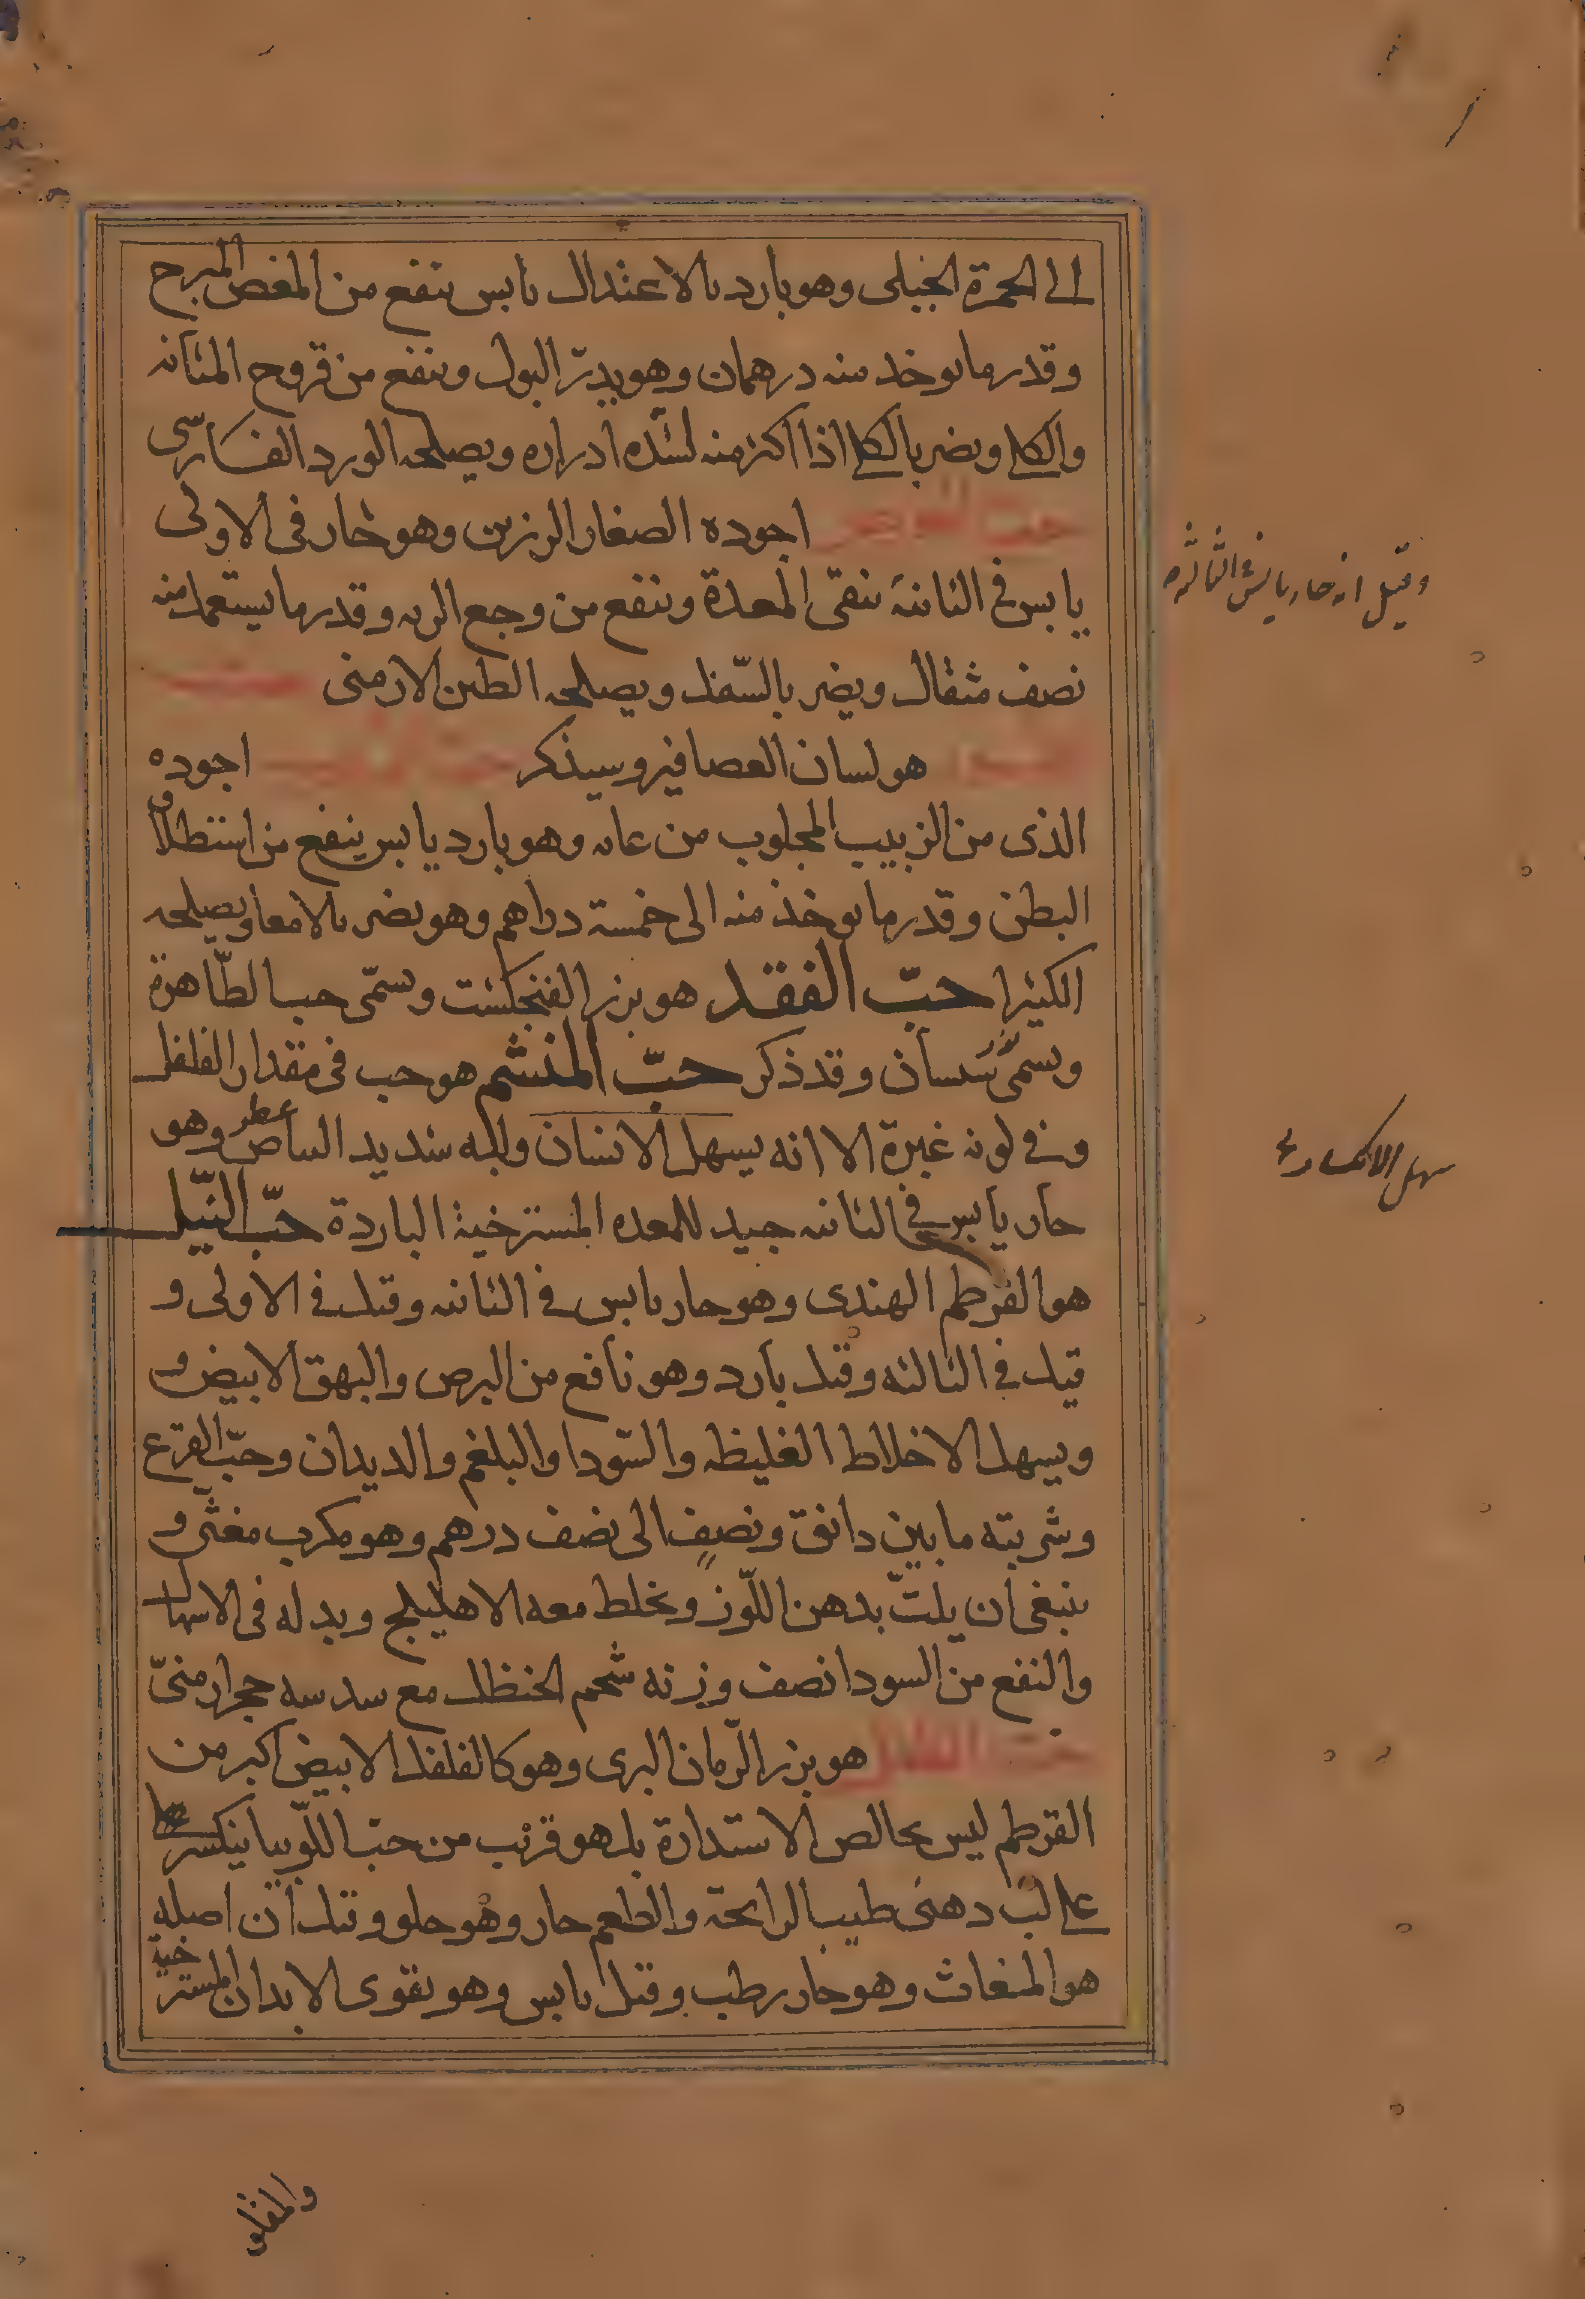 الى الحمرة الجبلى وهو بارد بالاعتدال يابس ينفع من المغص المبرح
وقدر ما يوخد منه درهمان وهو يدرّ البول وينفع من قروح المثانه
والكلا ويضر بالكلا اذا اكثر منه لشدّه ادراره ويصلحه الورد الفارسى
حب اجوده الصغار الرزين وهو حار فى الاولى
يابس فى الثانية ينقى المعدة وينفع من وجع الريه وقدر ما يستعمل منه
نصف مثقال ويضر بالسّفل ويصلحه الطين الارمنى
هو لسان العصافير وسيذكر حب الزبيب اجوده
الذى من الزبيب المجلوب من عانه وهو بارد يابس ينفع من استطلاق
البطن وقدر ما يوخذ منه الى خمسة دراهم وهو يضر بالامعا ويصلحه
الكثيرا حبّ الفقد هو بزر الفنجكشت ويسمّى حب الطّاهرة
ويسمى وقد ذكر حبّ المنشم هو حب فى مقدار الفلفل
وفى لونه غبرة الا انه يسهل الانسان ولبه شديد البياض عطر وهو
حار يابس فى الثانيه جيد للمعده المسترخية الباردة حبّ النّيل
هو القرطم الهندى وهو حار يابس فى الثانيه وقيل فى الاولى و
قيل فى الثالثه وقيل بارد وهو نافع من البرص والبهق الابيض و
ويسهل الاخلاط الغليظه والسّودا والبلغم والديدان وحبّ القرع
وشربته ما بين دانق ونصف الى نصف درهم وهو مكرب مغثّى و
ينبغى ان يلتّ بدهن اللّوز ويخلط معه الاهليلج وبدله فى الاسهال
والنفع من السودا نصف وزنه شحم الحنظل مع سدسه حجر ارمنىّ
حب القلقل هو بزر الرّمان البرى وهو كالفلفل الابيض اكبر من
القرطم ليس بخالص الاستدارة بل هو قريب من حبّ اللّوبيا ينكسر
على لبّ دهنى طيب الرايحة والطعم حار وهو حلو وقيل ان اصله
هو المغاث وهو حار رطب وقيل يابس وهو يقوى الابدان المسترخية
وقيل انه حار يابس فى الثانيه
يسهل